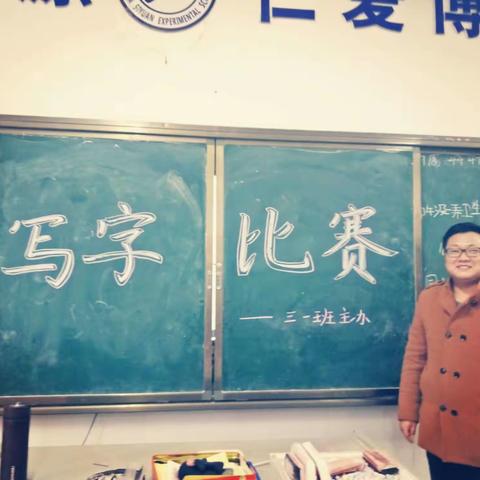 仁爱博
SIYUAN EXPERIMENTAL SCH
写字 比赛
——三一班主办